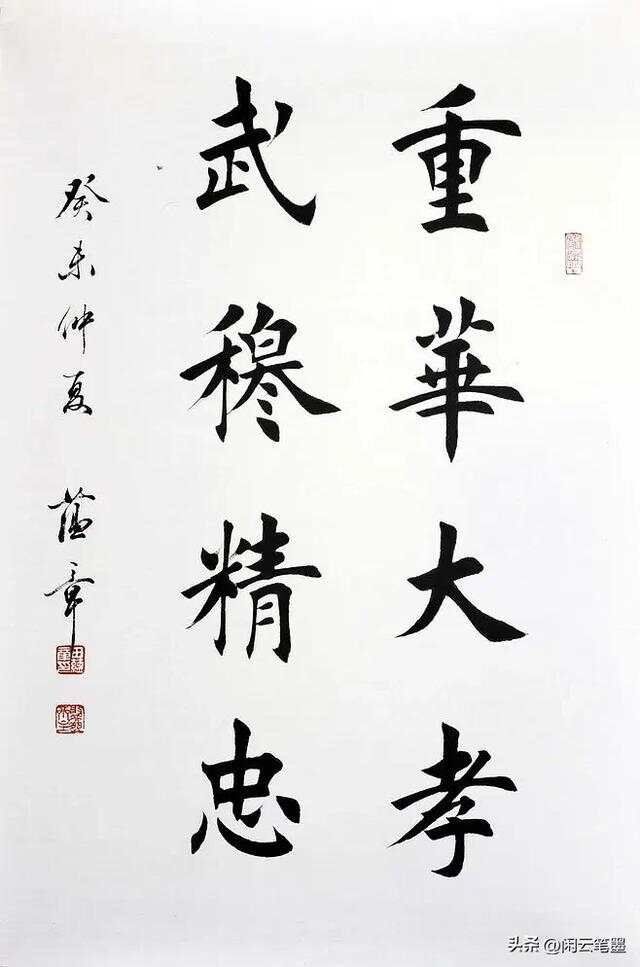 重華大孝
武穆精忠
癸未仲夏 蕴章
头条 @闲云笔墨